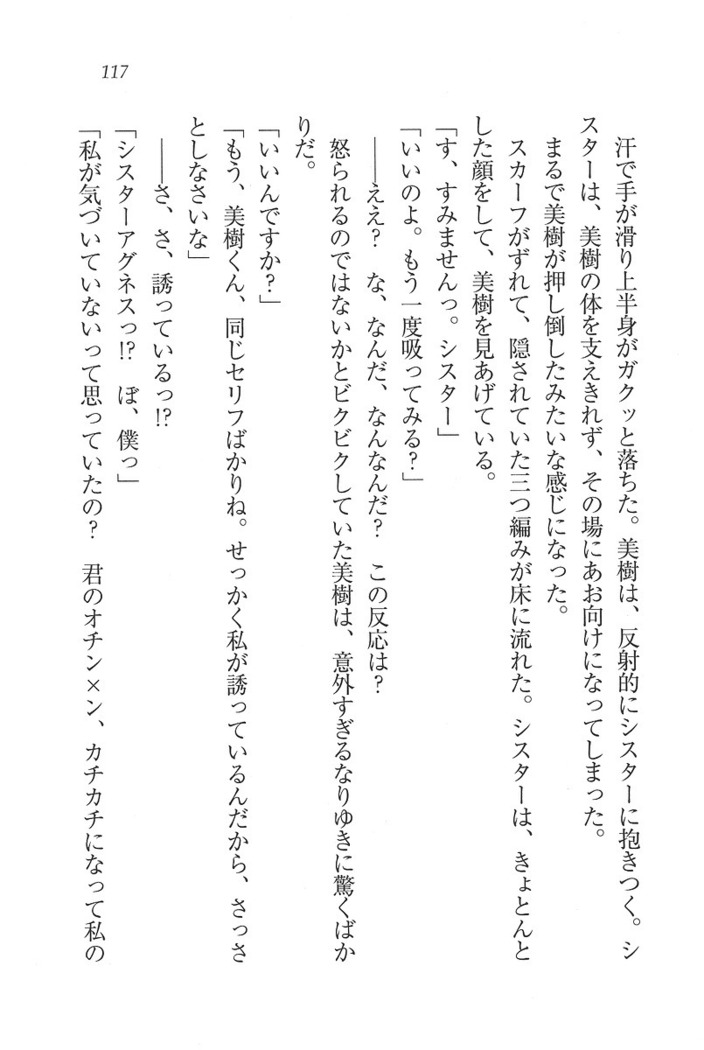 117
汗で手が滑り上半身がガクッと落ちた。美樹は、反射的にシスターに抱きつく。シ
スターは、美樹の体を支えきれず、その場にあお向けになってしまった。
まるで美樹が押し倒したみたいな感じになった。
スカーフがずれて、隠されていた三つ編みが床に流れた。シスターは、きょとんと
した顔をして、美樹を見あげている。
「す、すみませんっ。シスター」
「いいのよ。もう一度吸ってみる？」
――ええ？　な、なんだ、なんなんだ？　この反応は？
怒られるのではないかとビクビクしていた美樹は、意外すぎるなりゆきに驚くばか
りだ。
「いいんですか？」
「もう、美樹くん、同じセリフばかりね。せっかく私が誘っているんだから、さっさ
としなさいな」
――さ、さ、誘っているっ!?
「シスターアグネスっ!?　ぼ、僕っ」
「私が気づいていないって思っていたの？　君のオチン×ン、カチカチになって私の